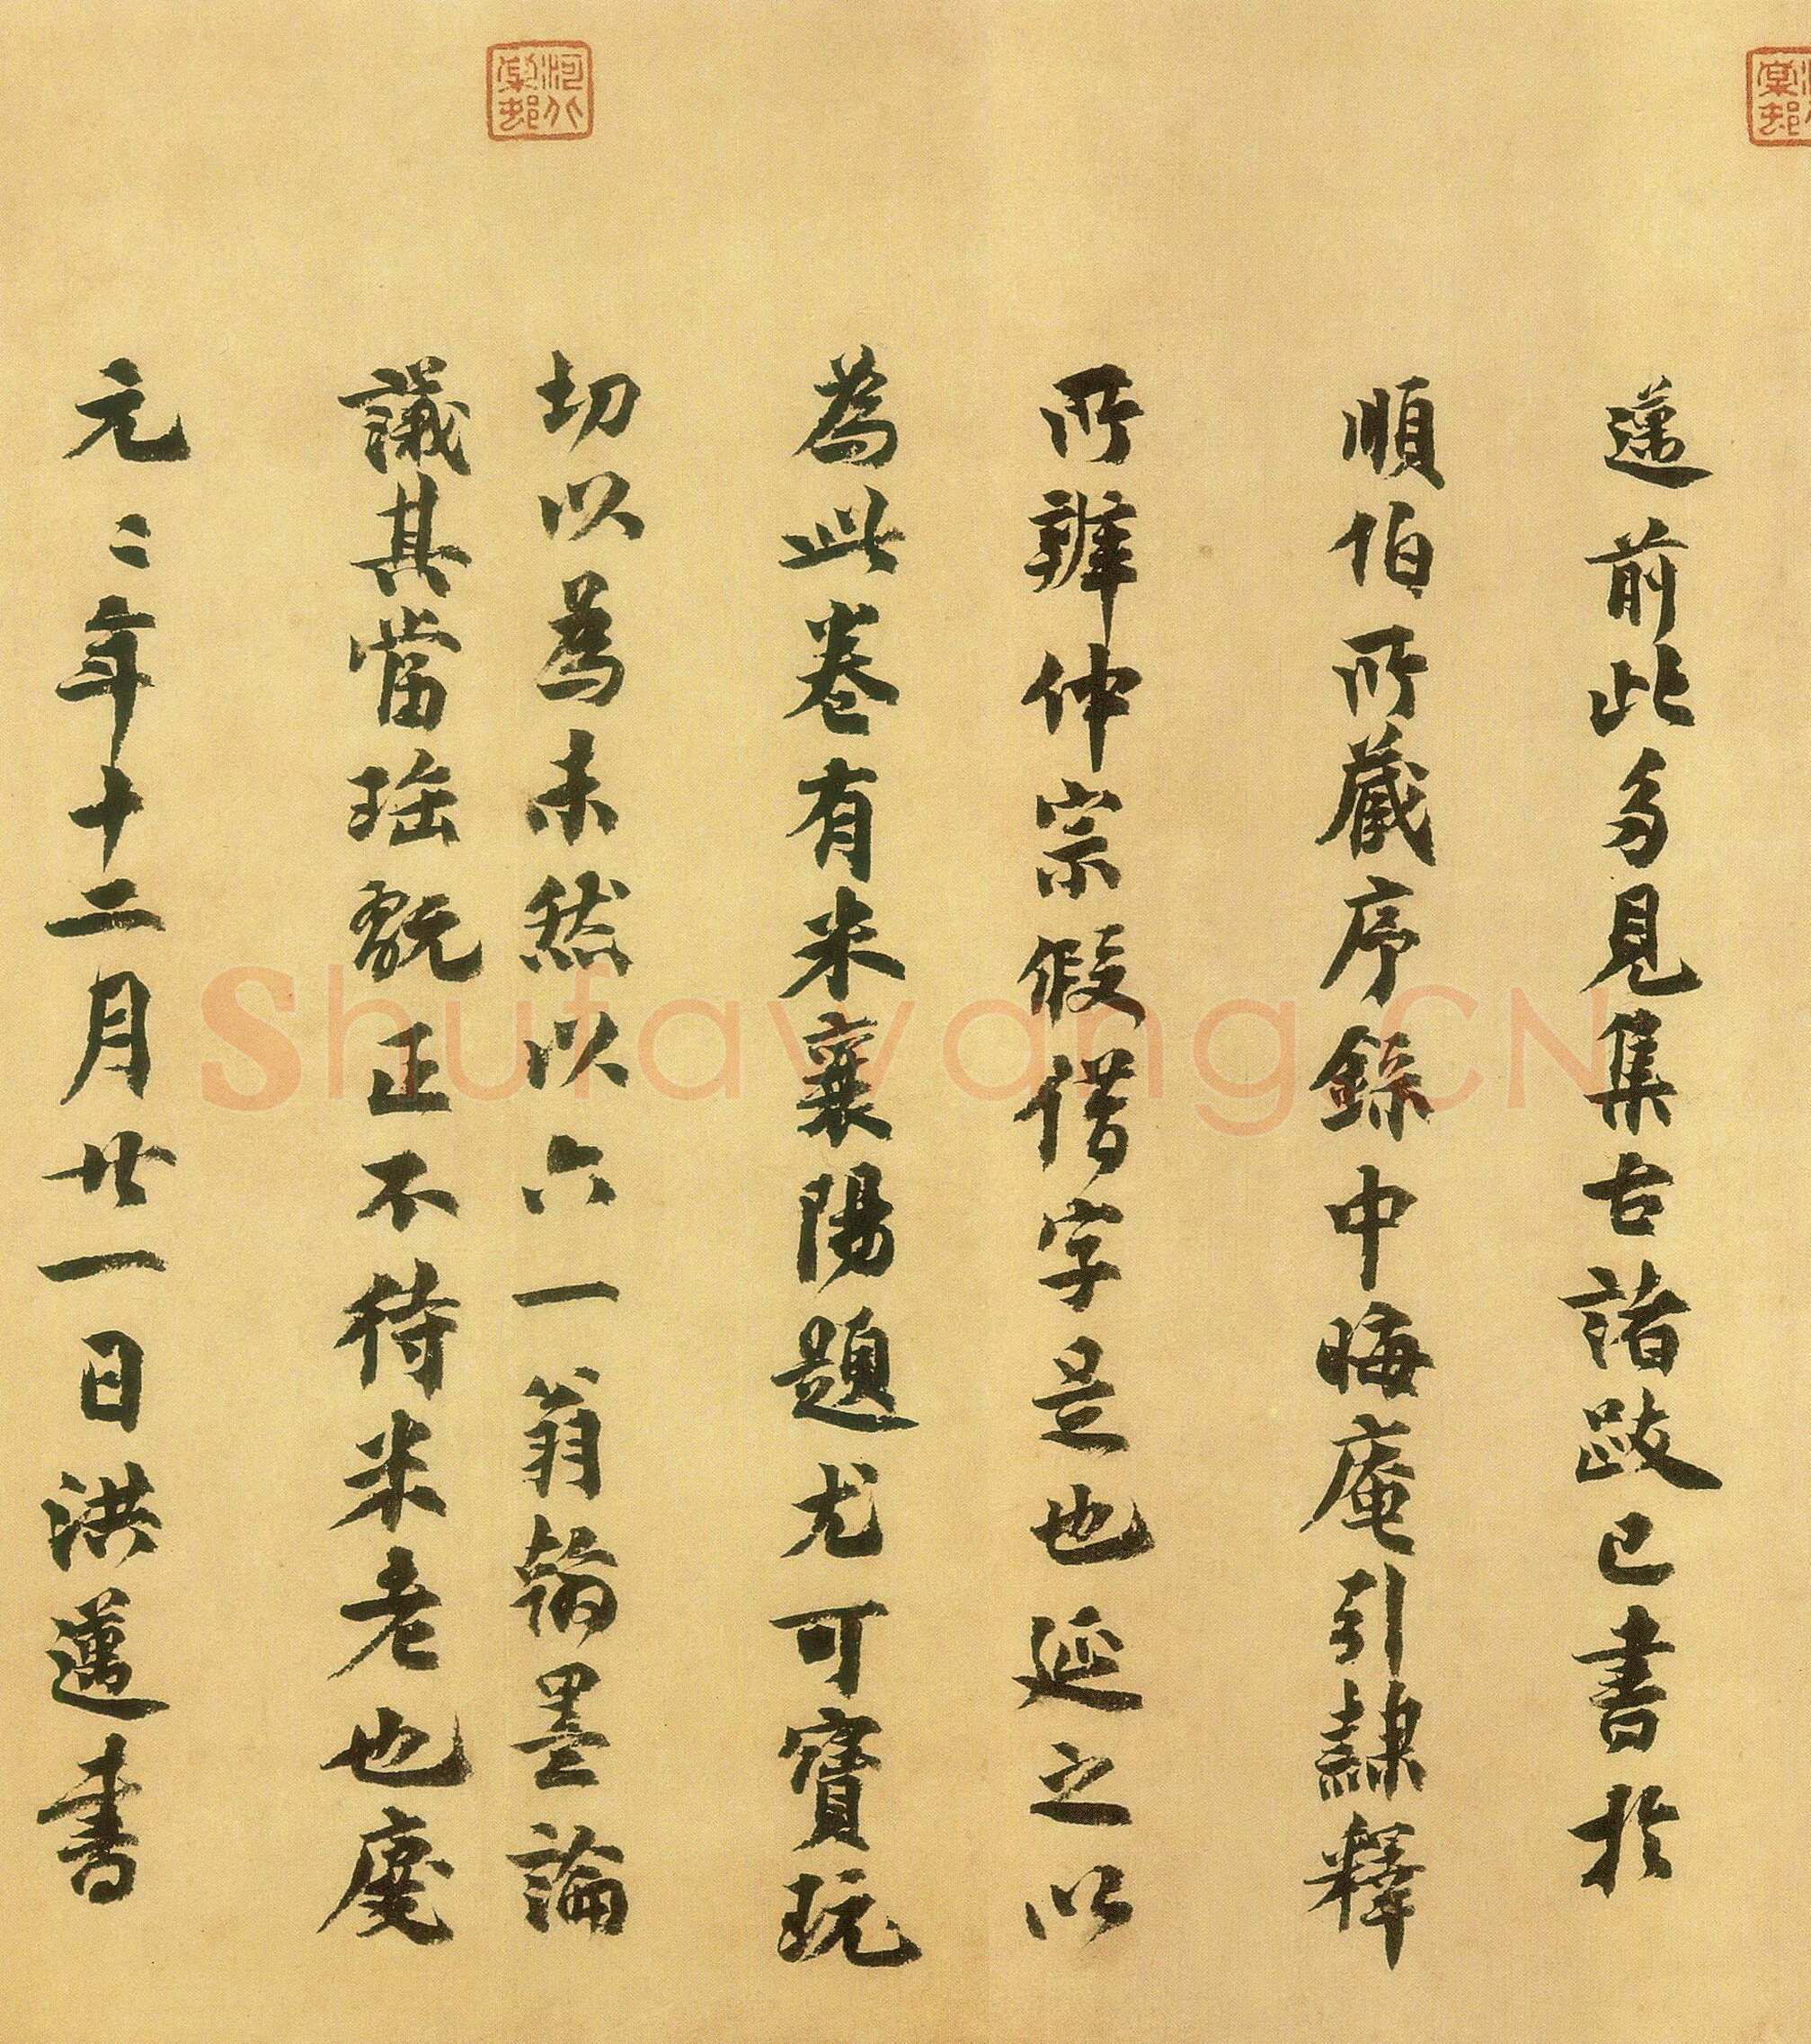 邁前此多見集古諸跋已書於
順伯所藏序錄中晦庵引隸釋
所辨仲宗假借字是也延之以
為此卷有米襄陽題尤可寶玩
切以為未然以六一翁翰墨論
議其當珤翫正不待米老也慶
元〻年十二月廿一日洪邁書
Shufawang.CN